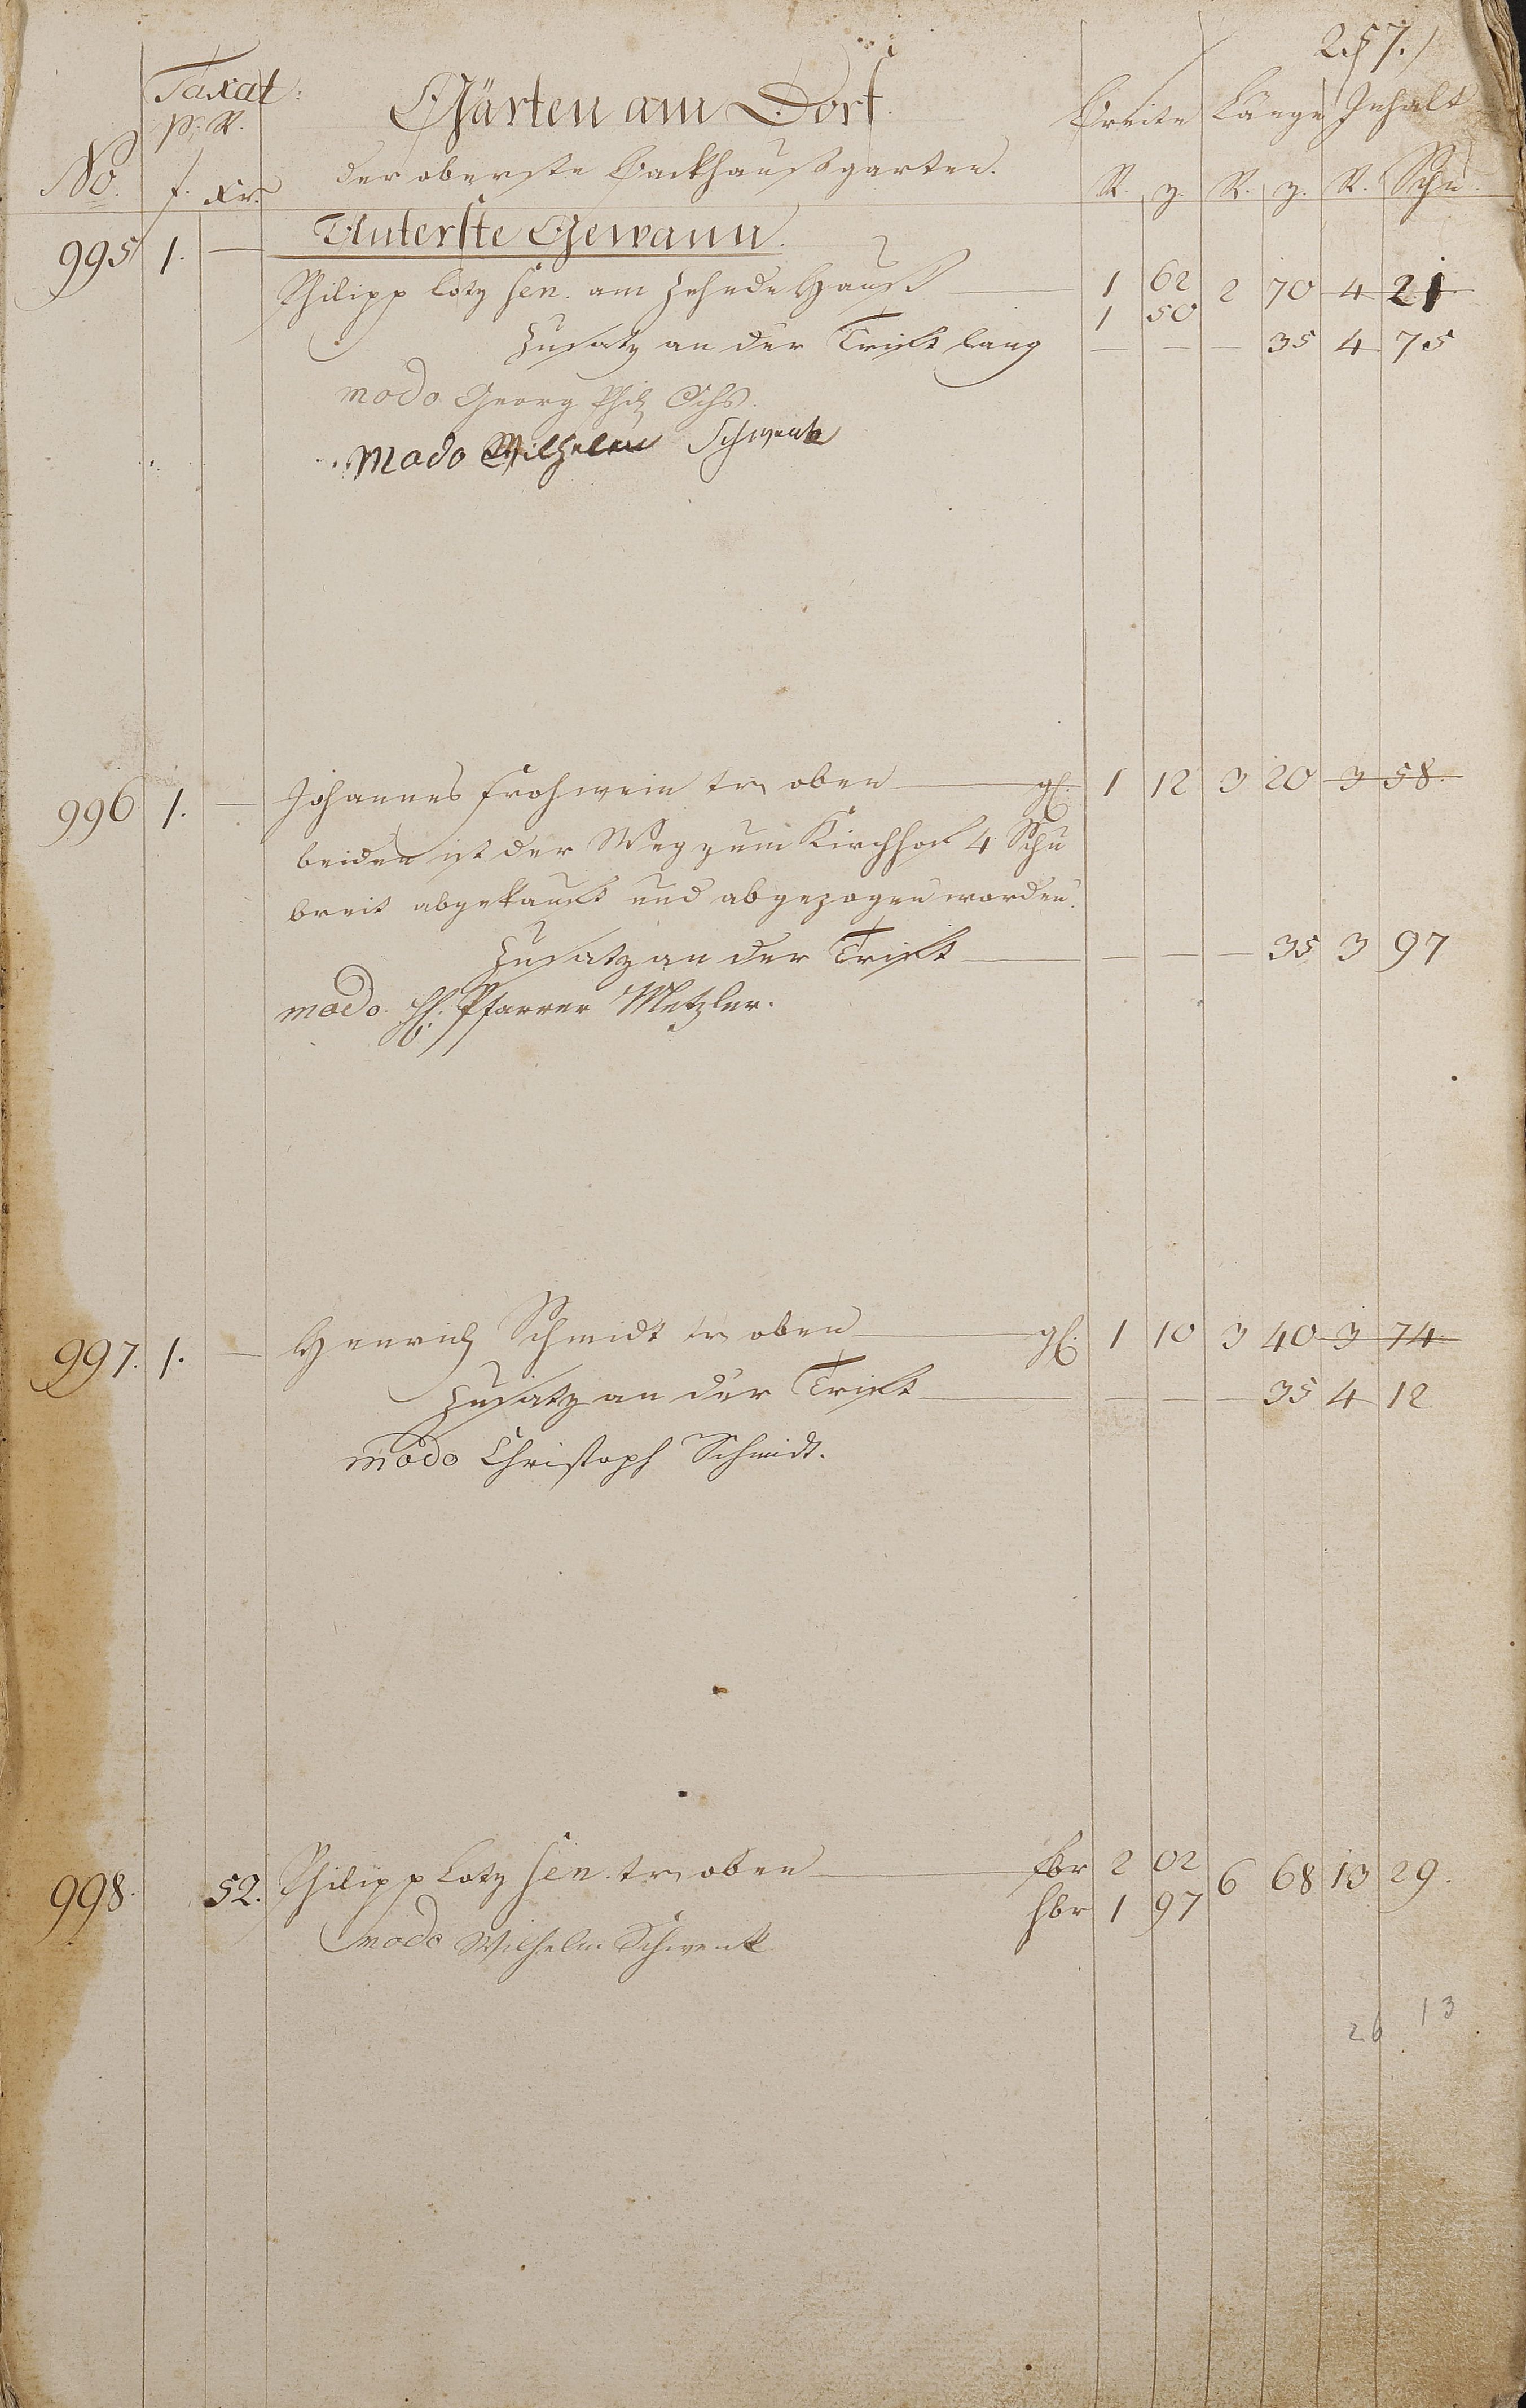 257.
Taxat: Gärten am Dorf. Breite Länge Inhalt
p. R.
No. f. xr. der oberste Backhaußgarten. R. z. R. z. R. Schu
Unterste Gewann.
995 1. — Philipp Lotz sen. am Zehnde Hauß — 1 62 2 70 4 21
1 50
Zusatz an der Trift lang — — — 35 4 75
modo Georg Phil Ochs.
modo Wilhelm Schwenk
996 1. — Johannes Frohwein trs oben — gl. 1 12 3 20 3 58.
beiden ist der Weg zum Kirchhof 4 Schu
breit abgekauft und abgezogen worden.
Zusatz an der Trift — — — 35 3 97
modo H. Pfarrer Metzler.
997. 1. — Henrich Schmidt trs oben — gl. 1 10 3 40 3 74
Zusatz an der Trift — — — 35 4 12
modo Christoph Schmidt.
998. 52. Philipp Lotz sen. trs oben — fbr 2 02 6 68 13 29.
hbr 1 97
modo Wilhelm Schwenk
26 13